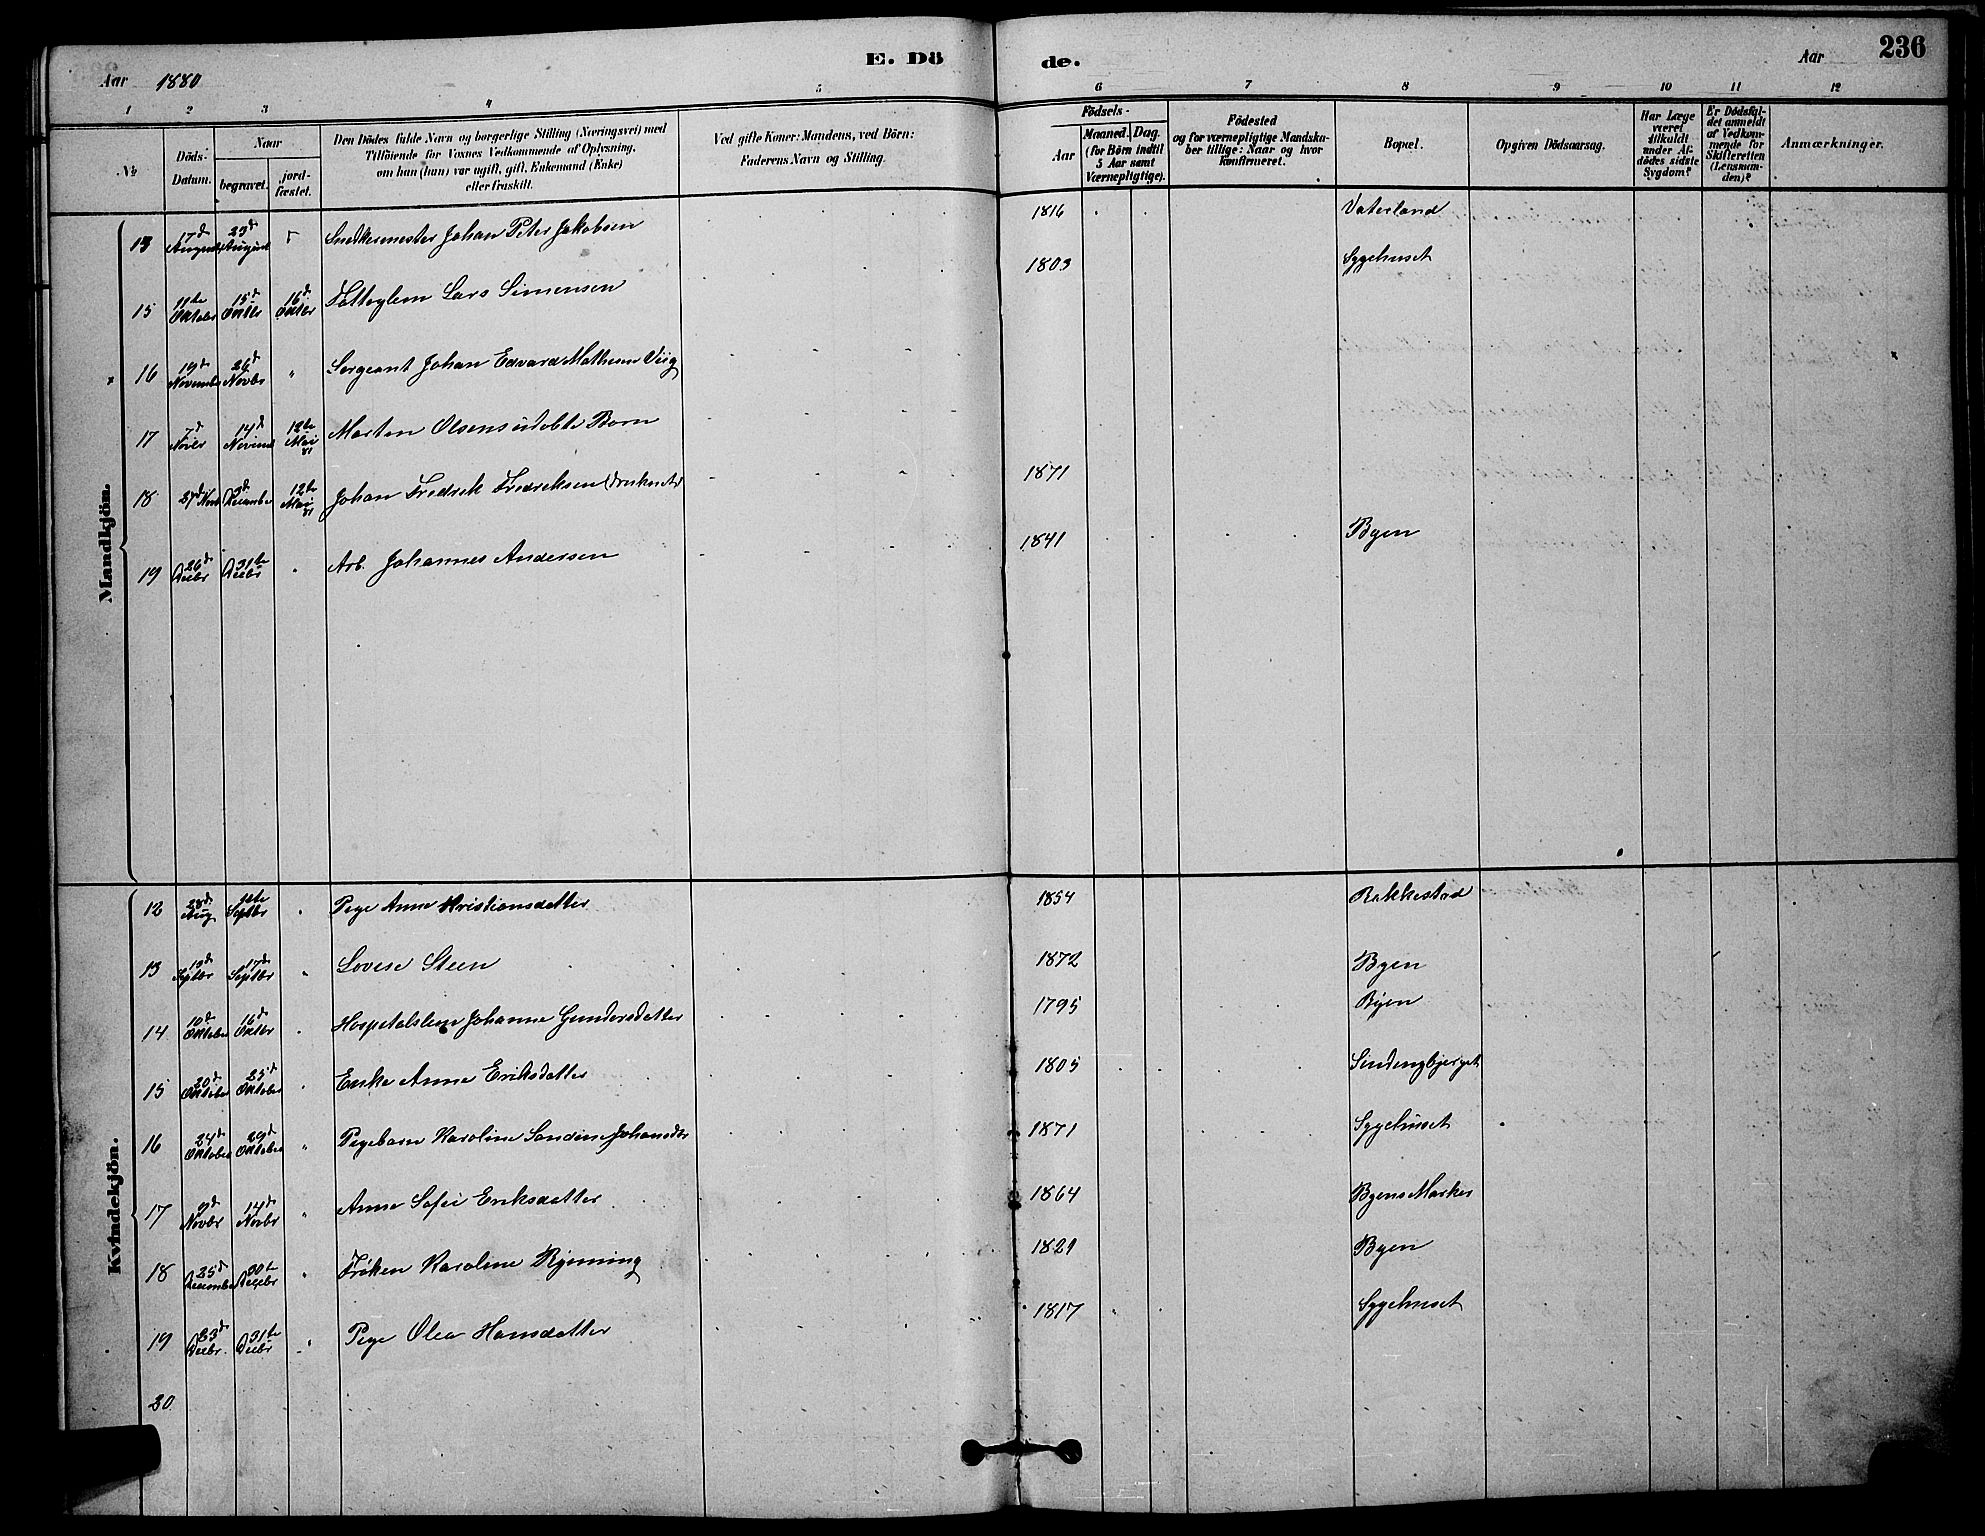 E. Dö de.
Aar 1880
Aar 236
1 2 3 4 5 6 7 8 9 10 11 12
No
Döds-Datum.
Naar
begravet.
jord-fæstet.
Den Dödes fulde Navn og borgerlige Stilling (Næringsvei) med
Tilföiende for Voxnes Vedkommende af Oplysning,
om han (hun) var ugift, gift, Enkemand (Enke)
eller fraskilt.
Ved gifte Koner: Mandens, ved Börn:
Faderens Navn og Stilling.
Födsels-
Aar
Maaned. Dag.
(for Börn indtil
5 Aar samt
Værnepligtige).
Födested
og for værnepligtige Mandska-
ber tillige: Naar og hvor
konfirmeret.
Bopæl.
Opgiven Dödsaarsag.
Har Læge
været
tilkaldt
under Af-
dödes sidste
Sygdom?
Er Dödsfal-
det anmeldt
af Vedkom-
mende for
Skifteretten
(Lensman-
den)?
Anmærkninger.
Mandkjön.
13 17d August 23d August " Snedkermester Johan Peter Jakobsen 1816 Vaterland
15 11te Oktober 15d Oktbr 16d Oktbr Fattiglem Lars Simensen 1803 Sygehuset
16 19d November 26d Novbr " Sergeant Johan Edvard Mathesen Viig
17 7d Novbr 14d Novemb 12te Mai 81 Marten Olsens udøbte Barn
18 27d Novb 3d December 12te Mai 81 Johan Fredrik Fredriksen 1871
19 26d Decbr 31te Decbr " Arb. Johannes Andersen 1841 Byen
Kvindekjön.
12 28d Aug 1te Septbr " Pige Anne Kristiansdatter 1854 Rakkestad
13 13d Septbr 17d Septbr " Lovise Steen 1872 Byen
14 10d Oktober 16d Oktbr " Hospitalslem Johanne Gundersdatter 1795 Byen
15 20d Oktober 25d Oktober " Enke Anne Eriksdatter 1805
16 24d Oktober 29d Oktober " Pigebarn Karoline Sandine Johansdtr 1871 Sygehuset
17 9d Novbr 14d Novbr " Anne Sofie Eriksdatter 1864 Byens Marker
18 25d December 30te Decbr " Frøken Karoline Bjørning 1821 Byen
19 23d Decbr. 31te Decbr " Pige Olea Hansdatter 1817 Sygehuset
20